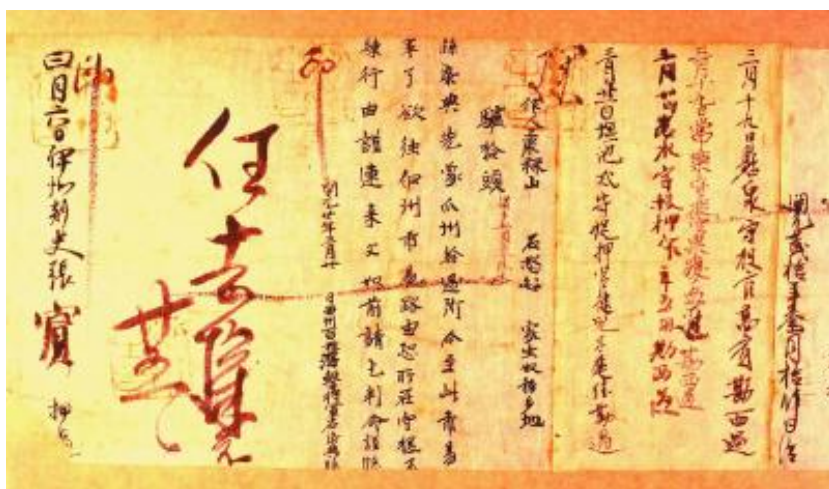 開元貳拾年叁月拾肆日給
三月十九日懸泉守捉官高賓勘西過
三月十九日常樂守捉官果毅孟進勘西過
三月廿日苦水守捉押官年五用勘西過
三月廿一日鹽池戍守捉押官健兒呂楚珪勘過
作人康祿山 石怒忿 家生奴移多地
驢拾頭
牒染典先蒙瓜州給過所今至此市易
事了欲往伊州市易路由恐所在守捉不
練行由謹連來文如前請乞判命謹牒
印
開元廿年三月廿 日西州百姓遊擊將軍石染典牒
任去
廿五
印
四月六日伊州刺史張賓 押過